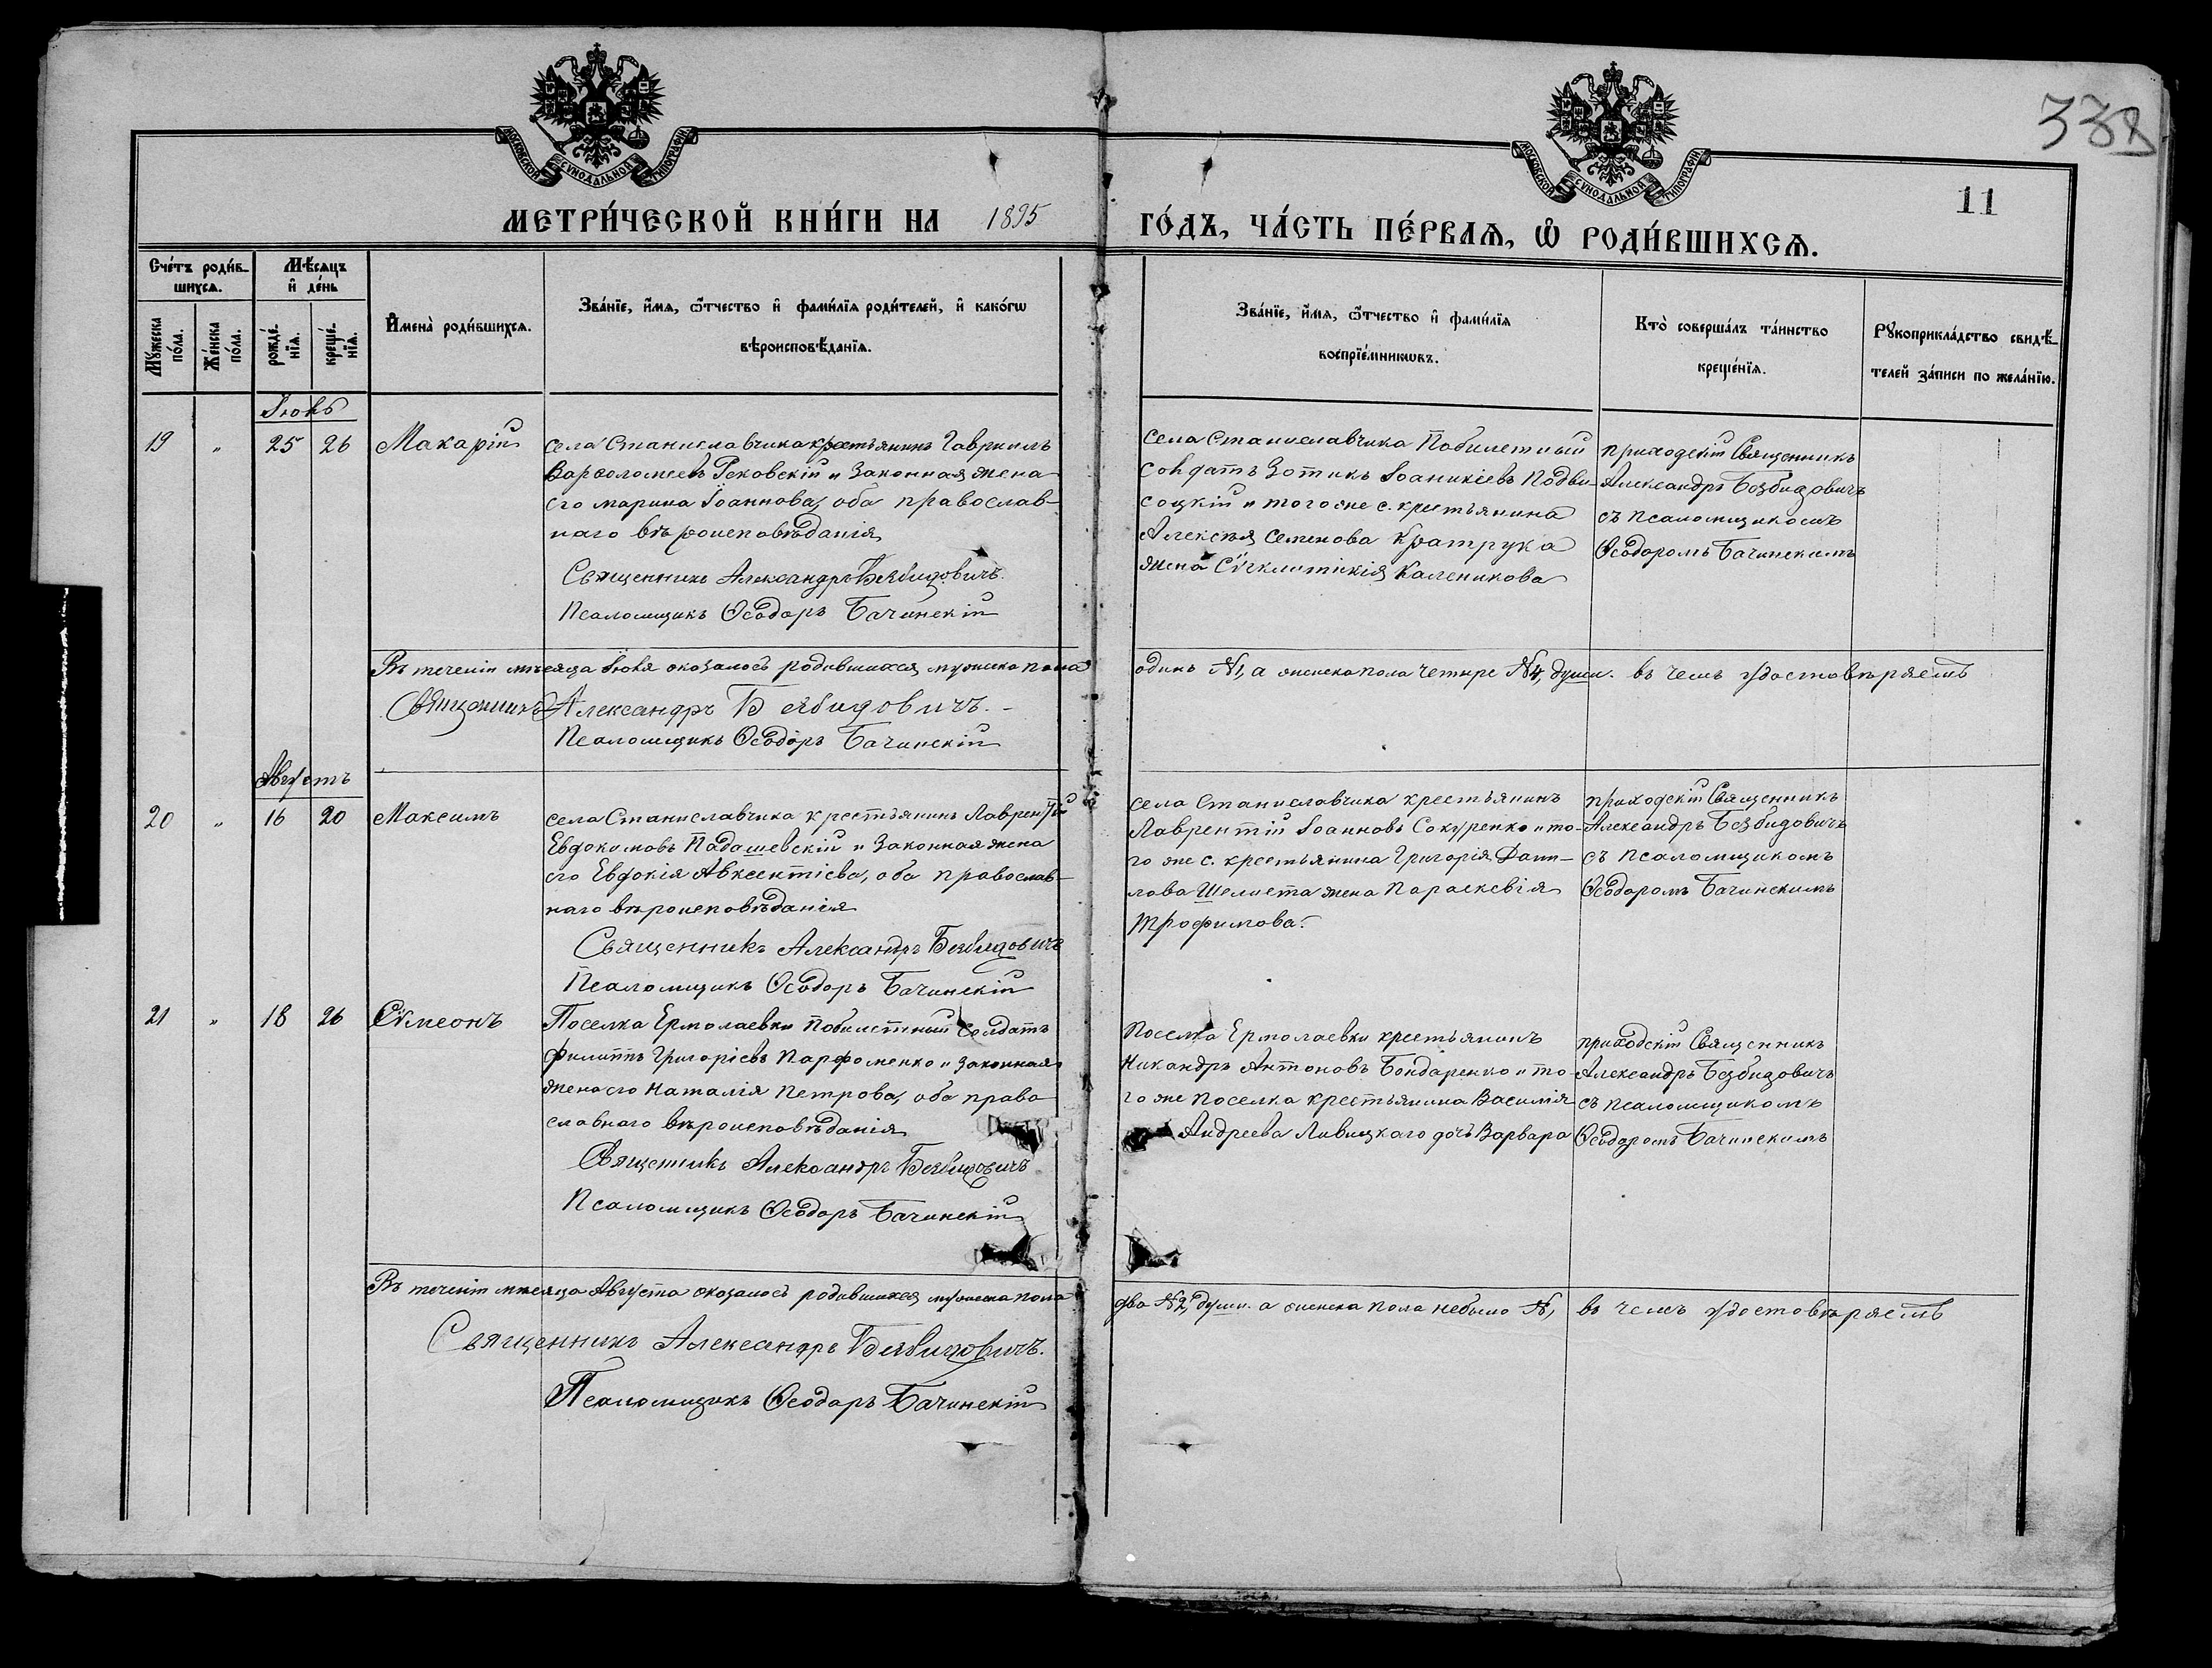 338
11
МОСКОВСКОЙ СѴНОДАЛЬНОЙ ТИПОГРАФІИ
МОСКОВСКОЙ СѴНОДАЛЬНОЙ ТИПОГРАФІИ
МЕТРИ́ЧЕСКОЙ КНИ́ГИ НА 1895 ГО́ДЪ, ЧА́СТЬ ПЕ́РВАѦ, Ѡ РОДИ́ВШИХСѦ.
Сче́тъ роди́в-
шихсѧ.
Мѣ́сѧцъ
и҆ де́нь
Мꙋ́жеска
по́ла.
Же́нска
по́ла.
рожде́-
нїѧ.
креще́-
нїѧ.
И҆мена̀ роди́вшихсѧ.
Зва́нїе, и҆́мѧ, ѻ҆́тчество и҆ фами́лїѧ роди́телей, и҆ како́гѡ
вѣроисповѣ́данїѧ.
Зва́нїе, и҆́мѧ, ѻ҆́тчество и҆ фами́лїѧ
воспрїе́мникѡвъ.
Кто̀ соверша́лъ та́инство
креще́нїѧ.
Рꙋкоприкла́дство свидѣ́-
телей за́писи по жела́нїю.
Іюль
19 " 25 26 Макарій
села Станиславчика крестьянинъ Гавриилъ
Варѳоломеевъ Гсковскій и законная жена
его Марина Іоаннова, оба православ-
наго вѣроисповѣданія
Священникъ Александръ Безвидовичъ.
Псаломщикъ Ѳеодоръ Бачинскій
села Станиславчика Побилетный
солдатъ Зотикъ Іоаникіевъ Подви-
соцкій и того же с. крестьянина
Алексѣя Семенова Кратрука
жена Сѵнклитикія Каленикова
приходскій Священникъ
Александръ Безвидовичъ
съ псаломщикомъ
Ѳеодоромъ Бачинскимъ
Въ теченіи мѣсяца Іюля оказалось родившихся, мужеска пола одинъ №1, а женска пола четыре №4, души. въ чемъ удостовѣряемъ
Священникъ Александръ Безвидовичъ. -
Псаломщикъ Ѳеодоръ Бачинскій
Августъ
20 " 16 20 Максимъ
села Станиславчика крестьянинъ Лаврентій
Евдокимовъ Падашевскій и законная жена
его Евдокія Авксентіева, оба православ-
наго вѣроисповѣданія
Священникъ Александръ Безвидовичъ
Псаломщикъ Ѳеодоръ Бачинскій
села Станиславчика крестьянинъ
Лаврентій Іоанновъ Сокуренко и то-
го же с. крестьянина Григорія Дани-
лова Шелиста жена Параскевія
Трофимова.
приходскій Священникъ
Александръ Безвидовичъ
съ псаломщикомъ
Ѳеодоромъ Бачинскимъ
21 " 18 26 Сѵмеонъ
Поселка Ермолаевки побилетный солдатъ
Филиппъ Григоріевъ Парфоменко и законная
жена его Наталія Петрова, оба право
славнаго вѣроисповѣданія
Священникъ Александръ Безвидовичъ
Псаломщикъ Ѳеодоръ Бачинскій
Поселка Ермолаевки крестьянинъ
Никандръ Антоновъ Бондаренко и то-
го же поселка крестьянина Василія
Андреева Ливицкаго дочь Варвара
приходскій Священникъ
Александръ Безвидовичъ
съ псаломщикомъ
Ѳеодоромъ Бачинскимъ
Въ теченіи мѣсяца Августа оказалось родившихся, мужеска пола два №2, души. а женска пола небыло №, въ чемъ удостовѣряемъ
Священникъ Александръ Безвидовичъ.
Псаломщикъ Ѳеодоръ Бачинскій